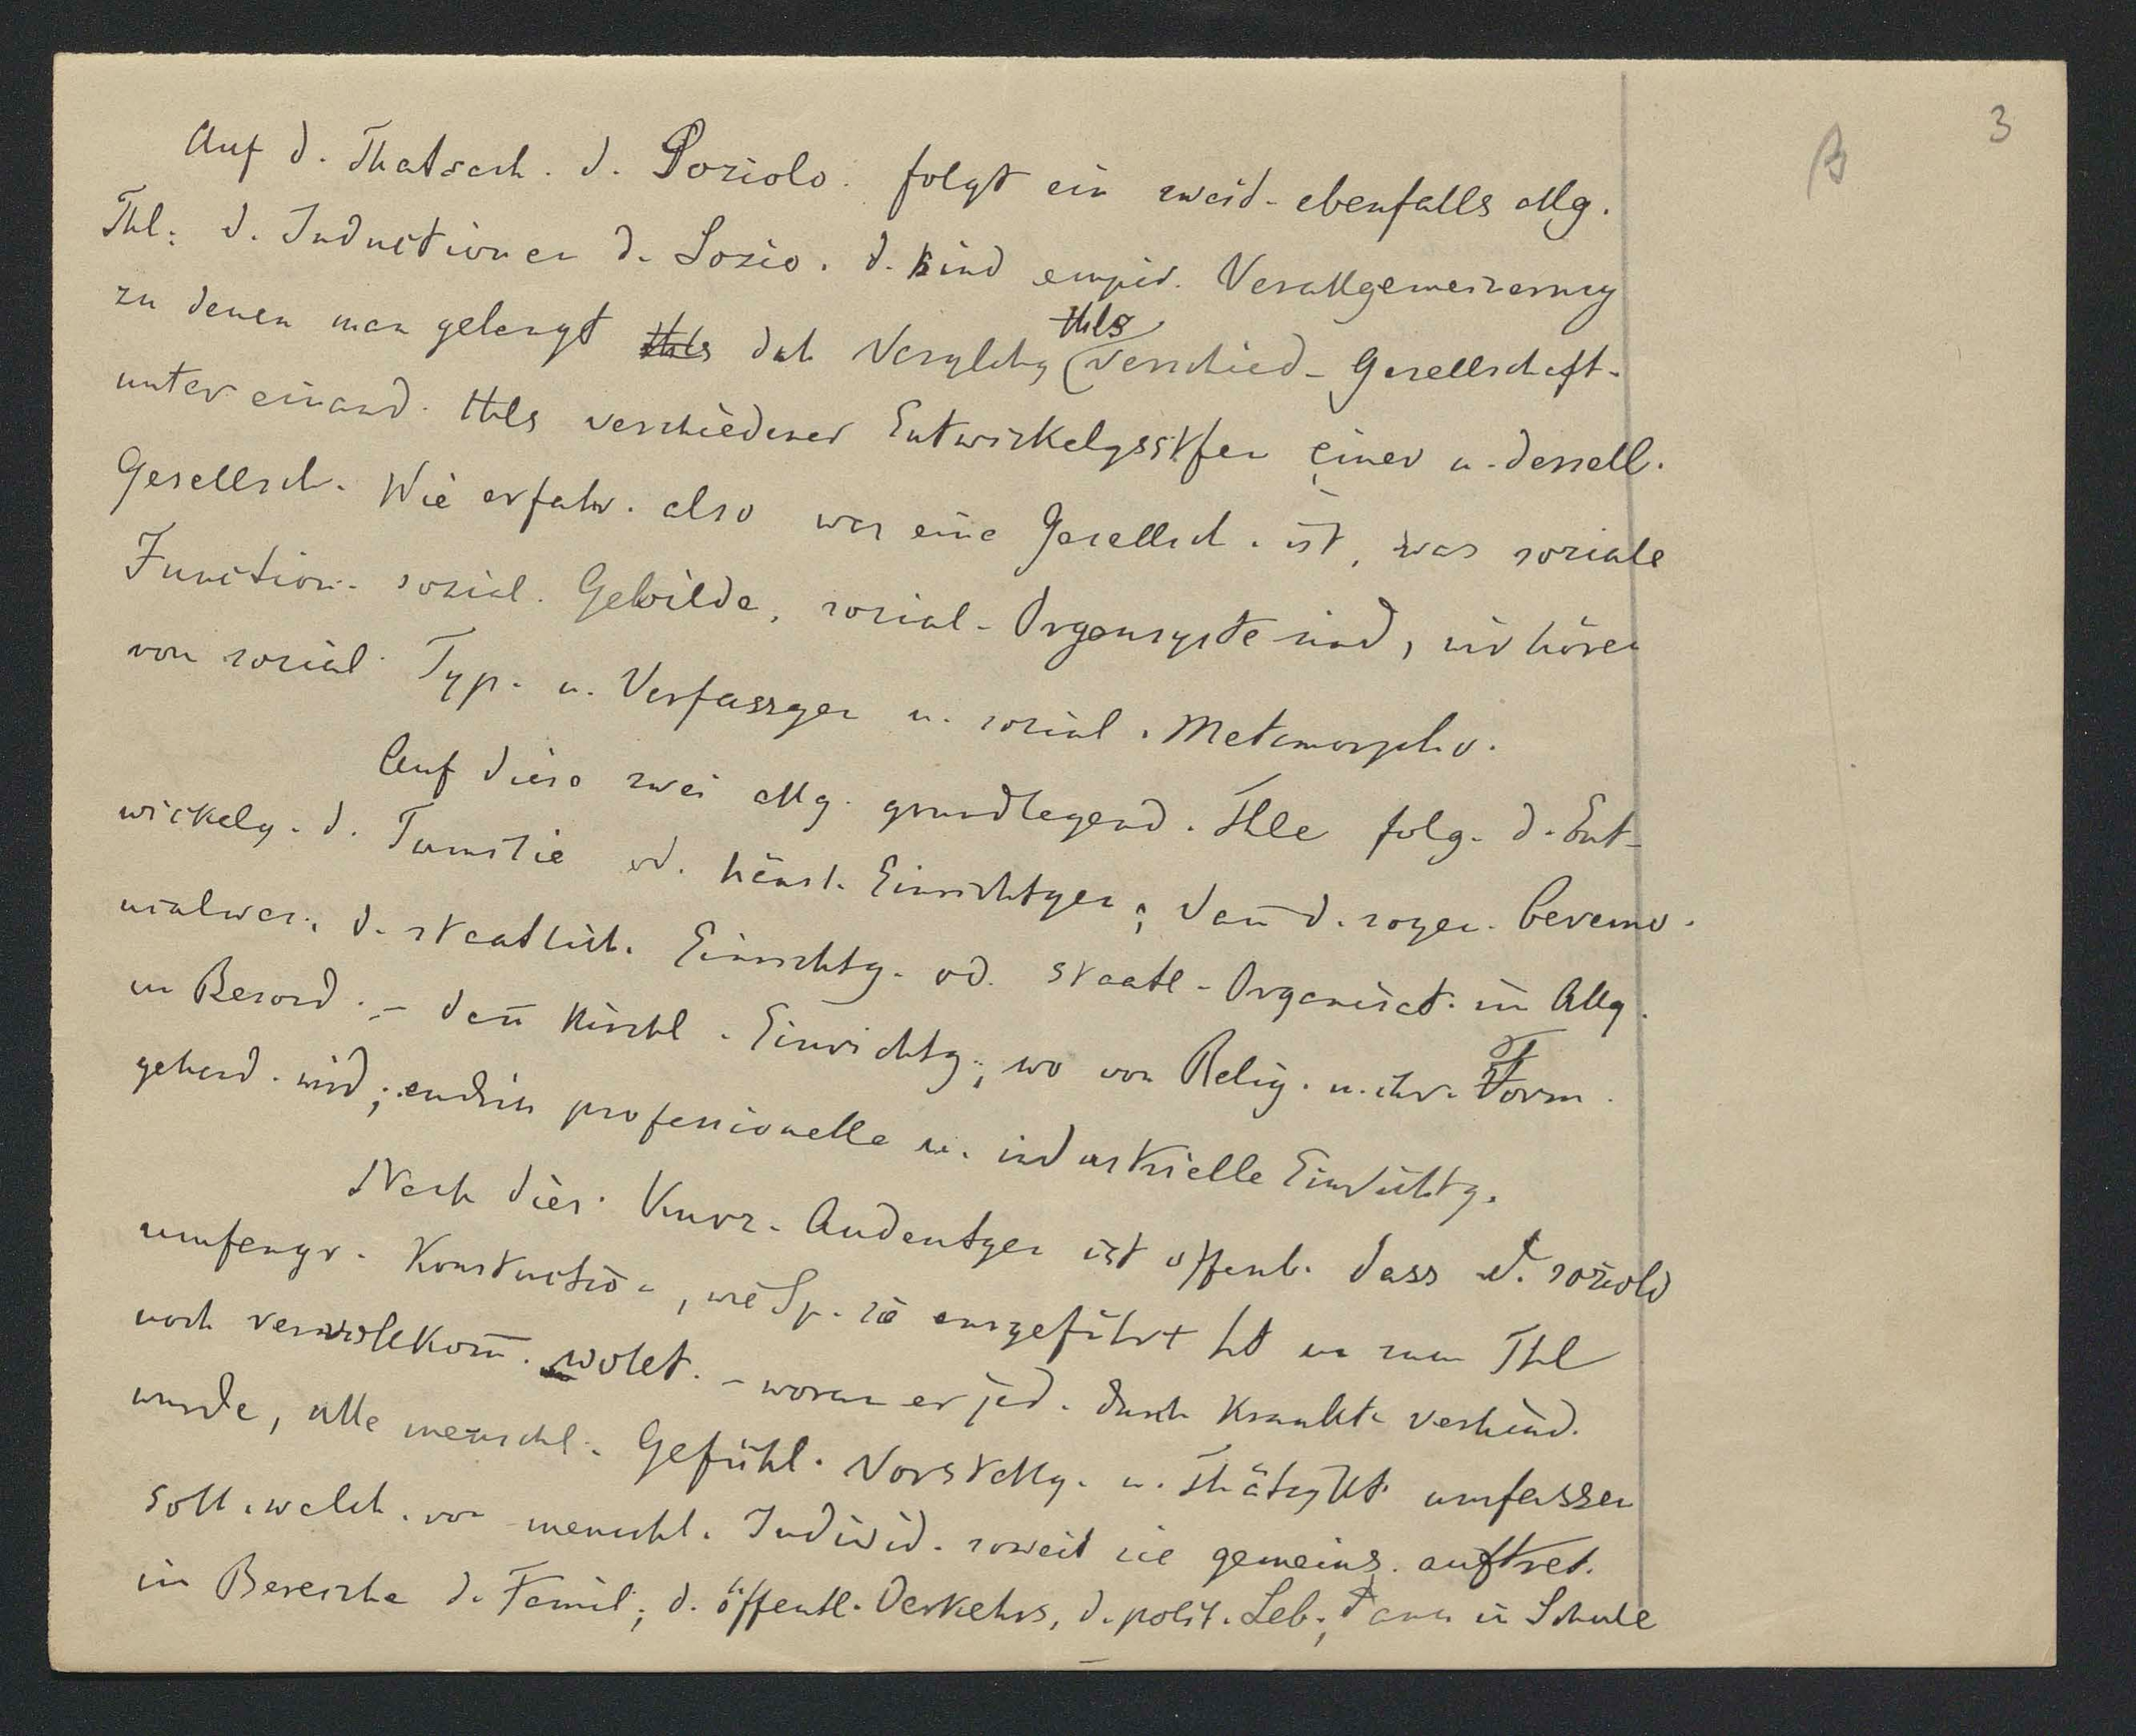 3
B
Auf d. Thatsach. d. Soziolo. folgt ein zweit. ebenfalls allg.
Thl: d. Inductionen d. Sozio. d. sind empir. Verallgemeinerung
zu denen man gelangt thls dch Verglchg thls verschied. Gesellschaft.
unter einand. thls verschiedener Entwickelgsstfen einer u. dersell.
Gesellsch. Wie erfahr. also was eine Gesellsch. ist, was soziale
Function. sozial. Gebilde, sozial. Organsyste sind, wir hören
von sozial. Typ. u. Verfassgen u. sozial. Metamorpho.
Auf diese zwei allg. grundlegend. Thle folg. d. Ent-
wickelg. d. Familie od. häusl. Einrichtgen; dañ d. sogen. Ceremo-
nialwes., d. staatlich. Einrichtg. od. staatl. Organisat. im Allg.
u Besond. – dañ kirchl. Einrichtg; wo von Relig. u. ihr. Form.
gehand. wird; endlich professionelle u. industrielle Einrichtg.
Nach dies. kurz. Andeutgen ist offenb. dass d. soziolo
umfangr. Konstruction, wie Sp. sie ausgeführt ht u zum Thl
noch vervollkom̃. wollt. – woran er jed. durch Krankht. verhind.
wurde, alle menschl. Gefühl. Vorstellg. u. Thätigkt. umfassen
soll. welch. von menschl. Individ. soweit sie gemeins. auftret.
im Bereiche d. Famil; d. öffentl. Verkehrs, d. polit. Leb; dann in Schule